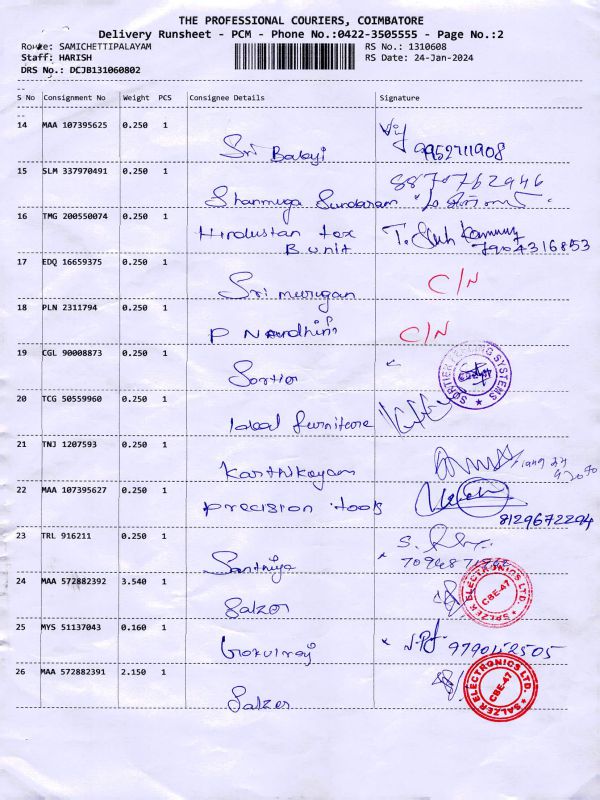 THE PROFESSIONAL COURIERS, COIMBATORE
Delivery Runsheet - PCM - Phone No.:0422-3505555 - Page No.:2
Route: SAMICHETTIPALAYAM RS No.: 1310608
Staff: HARISH RS Date: 24-Jan-2024
DRS No.: DCJB131060802
S No Consignment No Weight PCS Consignee Details Signature
14 MAA 107395625 0.250 1
Sri Balaji 9952711908
15 SLM 337970491 0.250 1 8870762946
Shanmuga Sundaram
16 TMG 200550074 0.250 1
Hindustan tex T.
B. unit 7904316853
17 EDQ 16659375 0.250 1
Sri murugan C/N
18 PLN 2311794 0.250 1
P Nandhini C/N
19 CGL 90008873 0.250 1
Sortier SORTIER SYSTEMS
20 TCG 50559960 0.250 1
Ideal furniture
21 TNJ 1207593 0.250 1
Karthikeyan
22 MAA 107395627 0.250 1
Precision tools 8129672294
23 TRL 916211 0.250 1 S.
24 MAA 572882392 3.540 1
Salzer SALZER ELECTRONICS LTD. CBE-47
25 MYS 51137043 0.160 1
Gokulraj
26 MAA 572882391 2.150 1
Salzer SALZER ELECTRONICS LTD. CBE-47